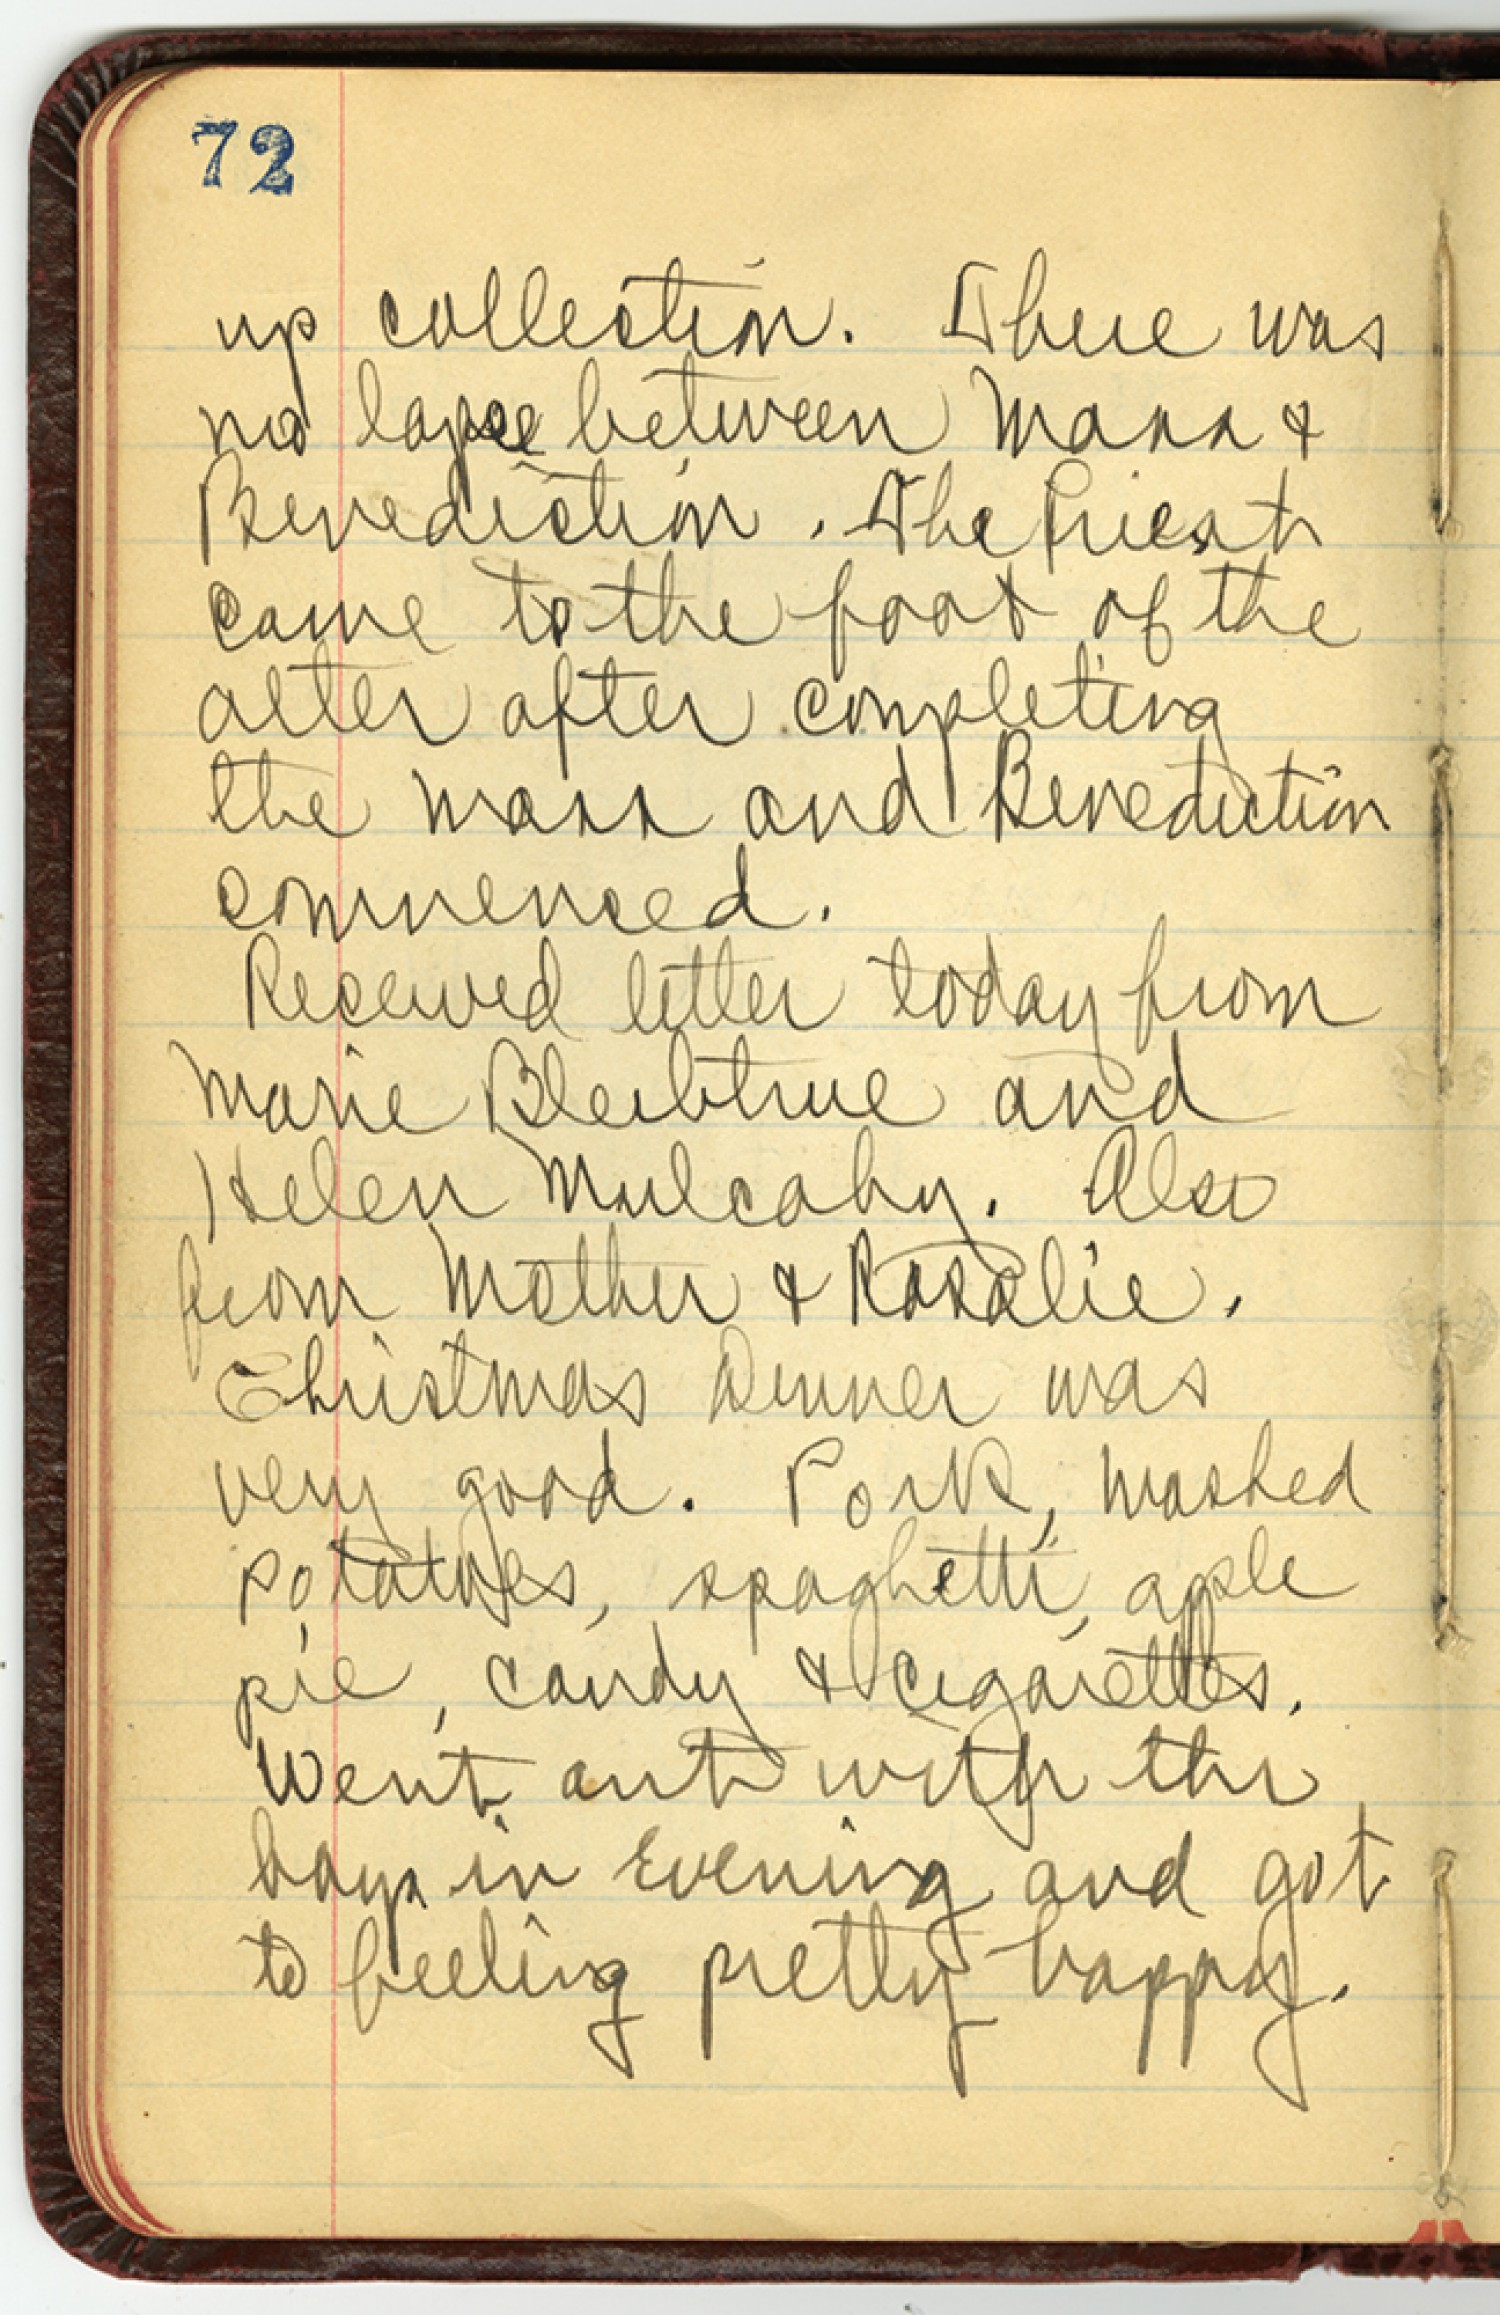 72
up collection. There was
no lapse between Mass &
Benediction. The Priest
came to the foot of the
alter after completing
the mass and Benediction
commenced.
Received letter today from
Marie Bleibtrue and
Helen Mulcahy. Also
from Mother & Rosalie.
Christmas Dinner was
very good. Pork, mashed
potatoes, spaghetti, apple
pie, candy & cigarettes.
Went out with the
boys in Evening and got
to feeling pretty happy.